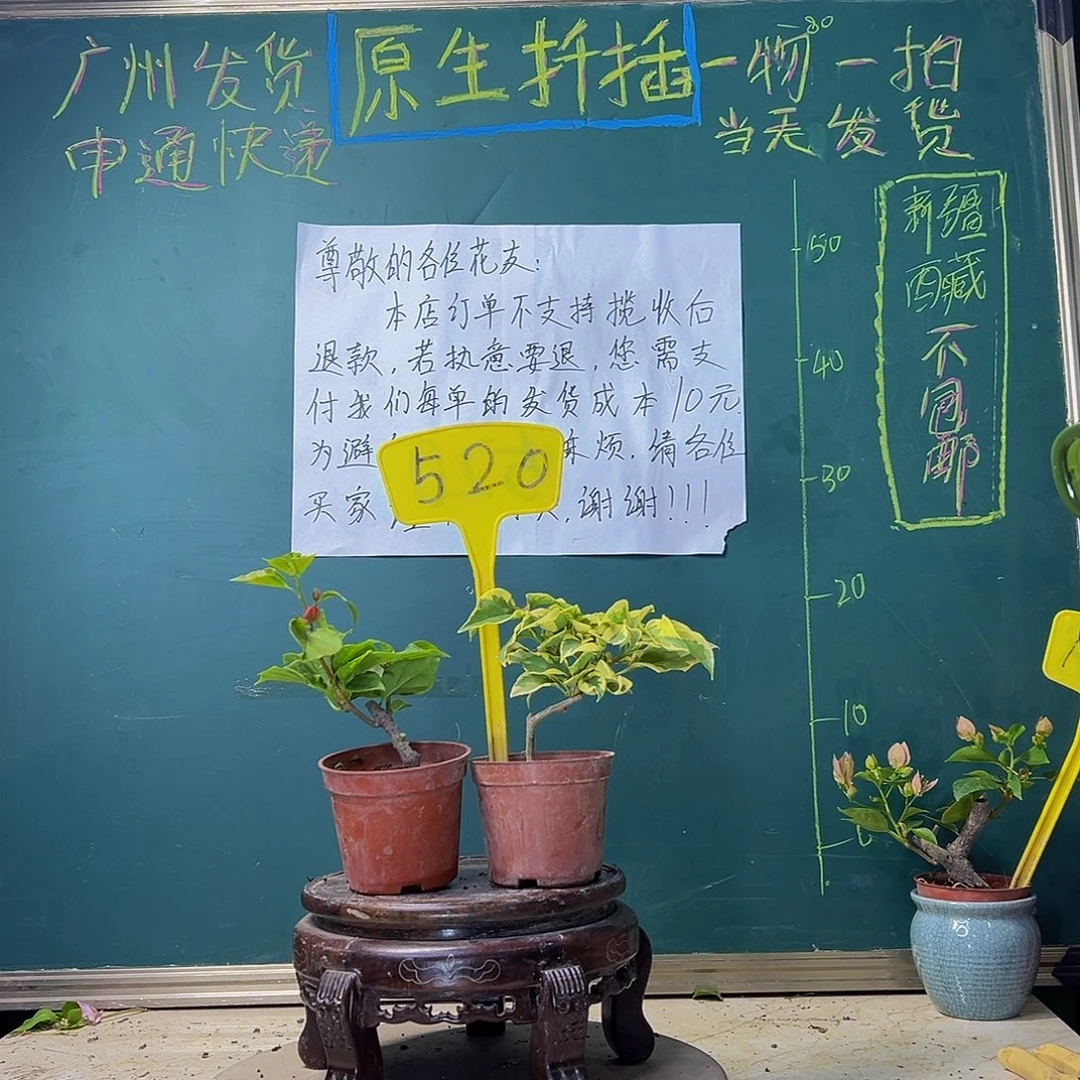 广州发货
申通快递
原生扦插
一物一拍
当天发货
新疆
西藏
不
包
邮
50
40
30
20
10
0
尊敬的各位花友:
本店订单不支持揽收后
退款,若执意要退,您需支
付我们每单的发货成本10元.
为避 烦,请各位
买家 ,谢谢!!!
520